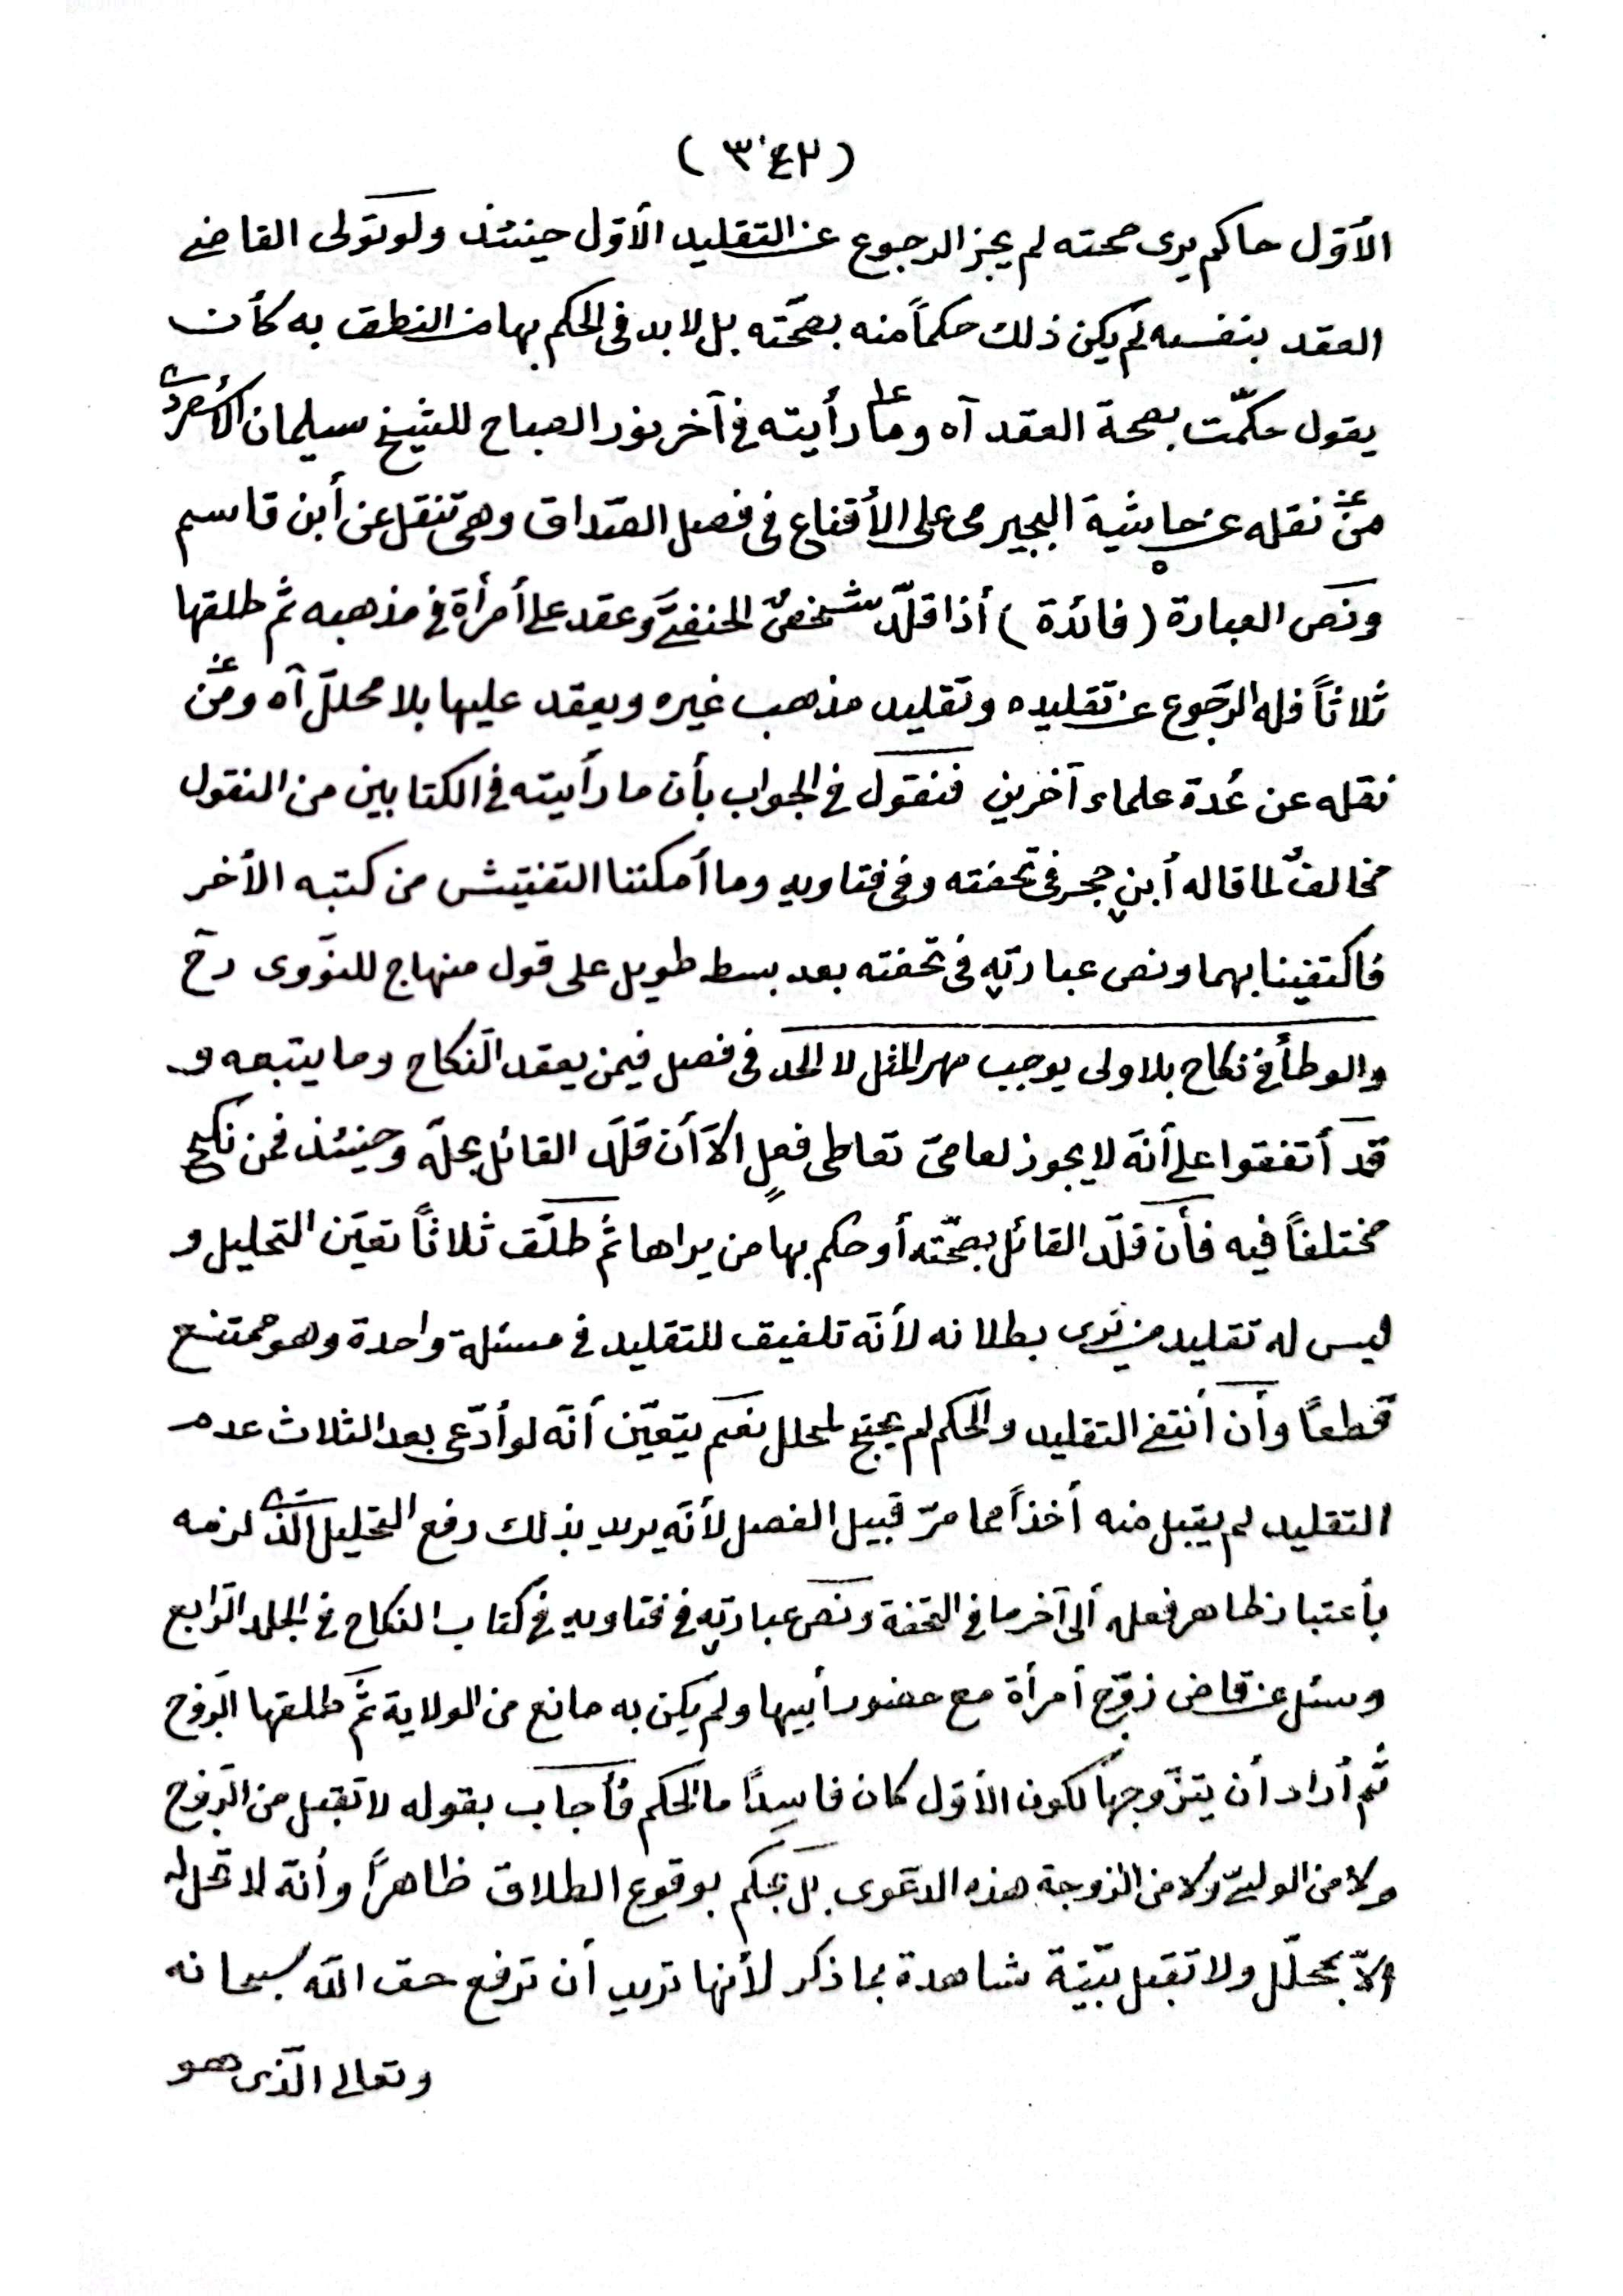 (٣٤٢)
الأوّل حاكم يرى صحته لم يجز الرجوع عن التقليد الأوّل حينئذ ولو تولى القاضي
العقد بنفسه لم يكن ذلك حكماً منه بصحّته بل لا بد في الحكم بها من النطق به كأن
يقول حكمّت بصحة العقد آه وما رأيته في آخر نور الصباح للشيخ سليمان
من نقله عن حاشية البجيرمى على الأقناع فى فصل الصّداق وهى تنقل عن أبن قاسم
ونصّ العبارة (فائدة) أذا قلّد شخصٌ الحنفيَّ وعقد على أمرأة في مذهبه ثم طلقها
ثلاثاً فله الرّجوع عن تقليده وتقليد مذهب غيره ويعقد عليها بلا محللّ آه ومن
نقله عن عُدة علماء آخرين فنقول في الجواب بأن ما رأيته في الكتابين من النقول
مخالفٌ لما قاله أبن حجر فى تحفته وفى فتاويه وما أمكننا التفتيش من كتبه الأخر
فاكتفينا بهما ونص عبارتهِ فى تحفته بعد بسط طويل على قول منهاج للنّووى رح
والوطأ في نكاح بلا ولى يوجب مهر المثل لا الحد فى فصل فيمن يعقد النّكاح وما يتبعه و
قد أتفقوا على أنّه لا يجوز لعامىّ تعاطى فعلٍ الاّ أن قلّد القائل بحلّه وحينئذ فمن نكح
مختلفاً فيه فأن قلّد القائل بصحّته أو حكم بها من يراها ثم طلّق ثلاثاً تعيّن التحليل و
ليس له تقليد من يرى بطلانه لأنّه تلفيق للتقليد في مسئلة واحدة وهو ممتنع
قطعاً وأن أنتفى التقليد والحكم لم يحتج لمحلل نعم يتعيّن أنّه لو أدّعى بعد الثلاث عدم
التقليد لم يقبل منه أخذاً مما مرّ قبيل الفصل لأنّه يريد بذلك رفع التحليل الّذى لزمه
بأعتبار ظاهر فعله ألى آخر ما في التحفة ونصّ عبارتهِ في فتاويه في كتاب النكاح في الجلد الرّابع
وسئل عن قاض زوّج أمرأة مع حضور أبيها ولم يكن به مانع من الولاية ثمّ طلقها الزّوج
ثُم أراد أن يتزّوجها لكون الأوّل كان فاسِداً ما الحكم فأجاب بقوله لا تقبل من الزّوج
ولا من الوليّ ولا من الزوجة هذه الدعّوى بل يحكم بوقوع الطلاق ظاهراً وأنّه لا تحل له
الاّ بمحلّل ولا تقبل بيّنة شاهدة بما ذكر لأنها تريد أن ترفع حق الله سبحانه
وتعالى الّذى هو